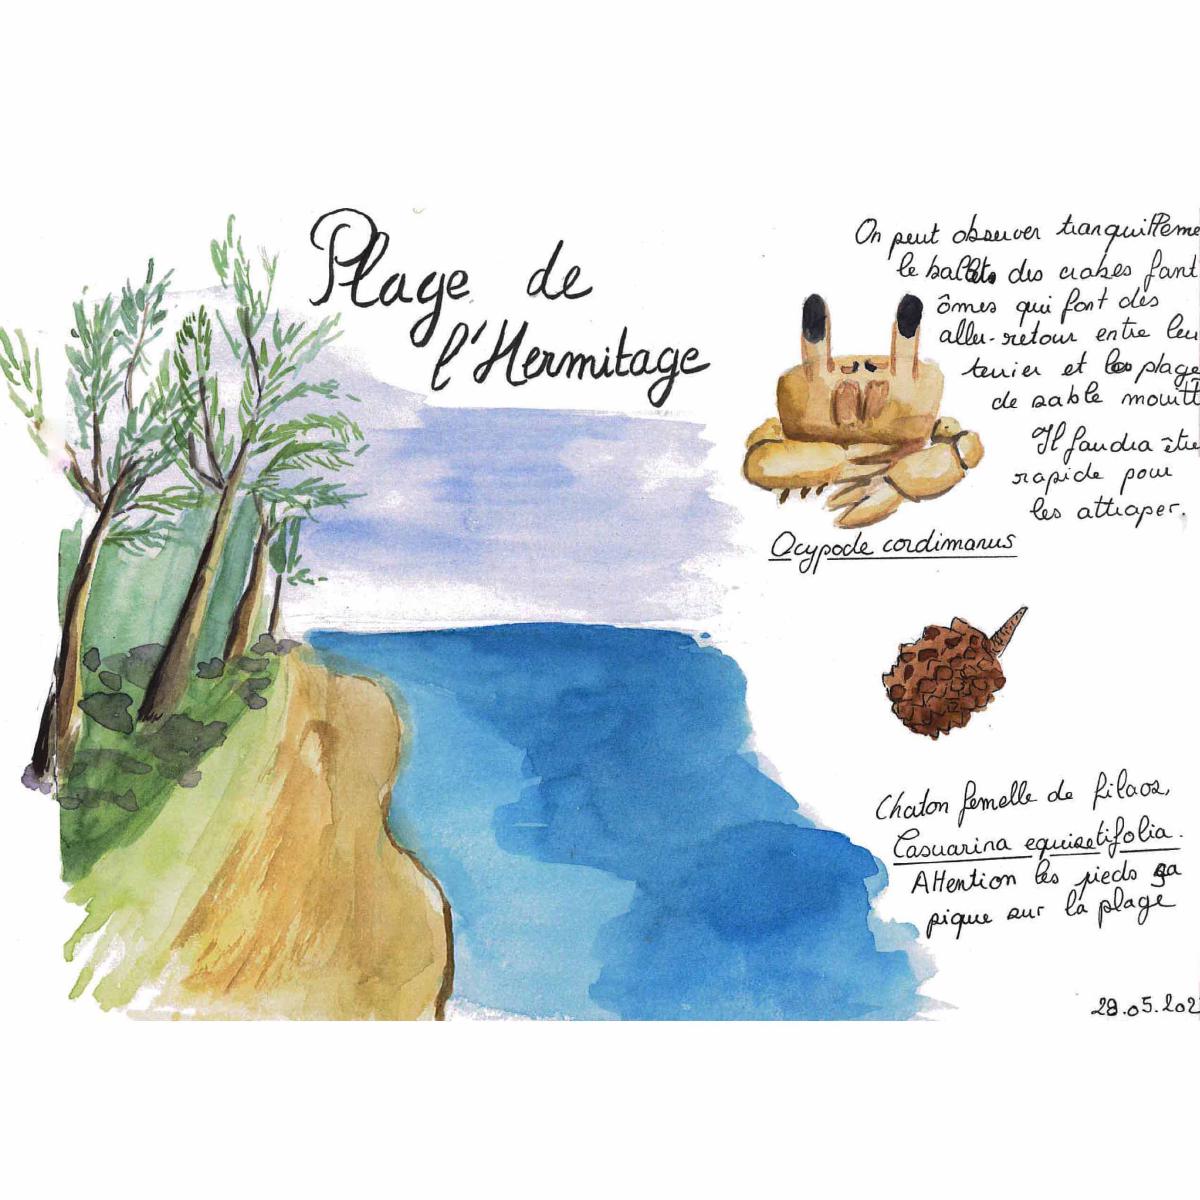 Plage de
l'Hermitage
On peut observer tranquilleme
le ballet des crabes fant
ômes qui font des
aller-retour entre leu
terrier et la plage
de sable mouill
Il faudra être
rapide pour
les attraper.
Ocypode cordimanus
Chaton femelle de filaos,
Casuarina equisetifolia.
Attention les pieds ça
pique sur la plage
28.05.202